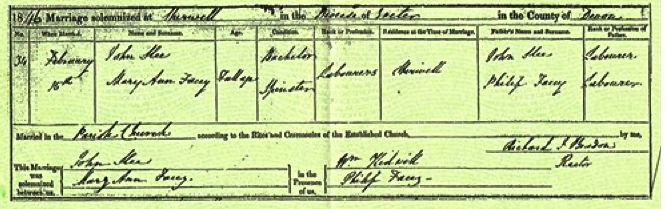 1846 Marriage solemnized at Sherwell in the Diocese of Exeter in the County of Devon
No. When Married. Name and Surname. Age. Condition. Rank or Profession. Residence at the Time of Marriage. Father's Name and Surname. Rank or Profession of Father.
34 February 16th John Slee Full age Bachelor Labourers Sherwell John Slee Labourer
Mary Ann Facey Spinster Philip Facey Labourer
Married in the Parish Church according to the Rites and Ceremonies of the Established Church, by me,
Richard J Rector
This Marriage was solemnized between us, John Slee Mary Ann Facey in the Presence of us, Wm Philip Facey